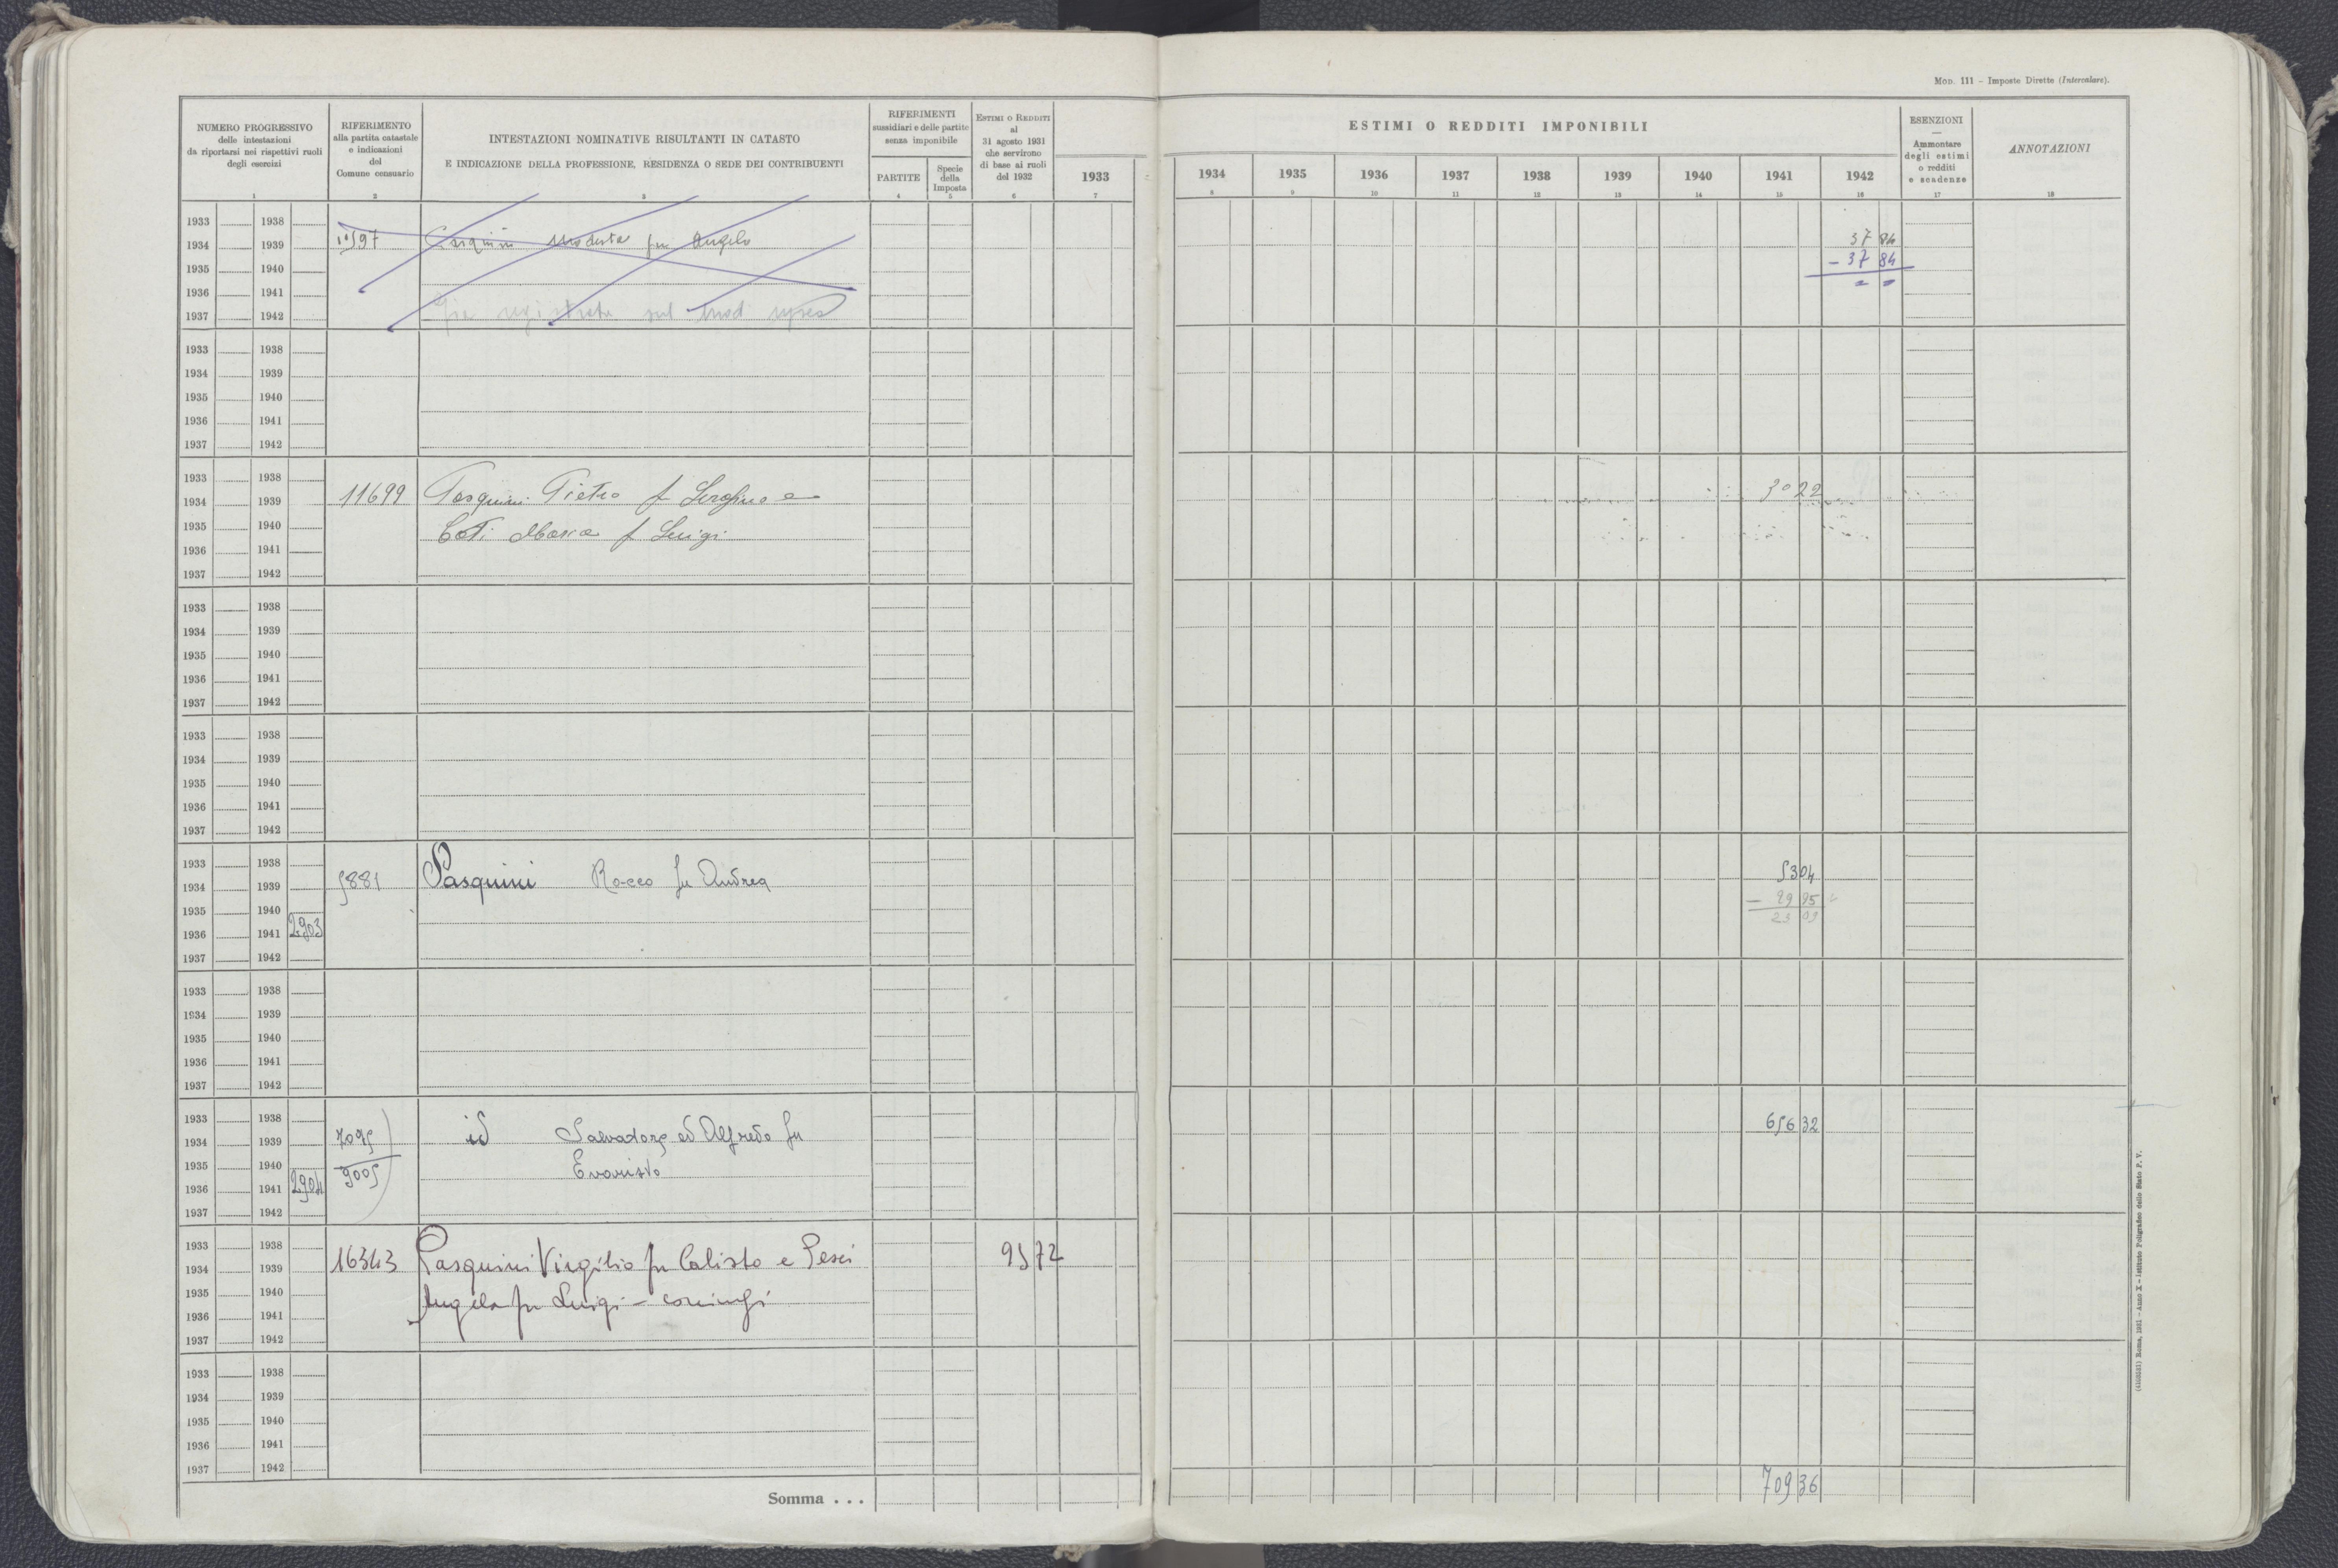 MOD. 111 - Imposte Dirette (Intercalare).
NUMERO PROGRESSIVO
delle intestazioni
da riportarsi nei rispettivi ruoli
degli esercizi
RIFERIMENTO
alla partita catastale
e indicazioni
del
Comune censuario
INTESTAZIONI NOMINATIVE RISULTANTI IN CATASTO
E INDICAZIONE DELLA PROFESSIONE, RESIDENZA O SEDE DEI CONTRIBUENTI
RIFERIMENTI
sussidiari e delle partite
senza imponibile
PARTITE
Specie
della
Imposta
ESTIMI O REDDITI
al
31 agosto 1931
che servirono
di base ai ruoli
del 1932
ESTIMI O REDDITI IMPONIBILI
1933 1934 1935 1936 1937 1938 1939 1940 1941 1942
ESENZIONI
—
Ammontare
degli estimi
o redditi
e scadenze
ANNOTAZIONI
1 2 3 4 5 6 7 8 9 10 11 12 13 14 15 16 17 18
1933 1938
1934 1939 Pasquini Modesta fu Angelo 37 84
1935 1940 - 37 84
1936 1941 = =
1937 1942 Già registrata sul mod
1933 1938
1934 1939
1935 1940
1936 1941
1937 1942
1933 1938
1934 1939 11699 Pasquini Pietro f Serafino e 30 22
1935 1940 Coti Maria f Luigi
1936 1941
1937 1942
1933 1938
1934 1939
1935 1940
1936 1941
1937 1942
1933 1938
1934 1939
1935 1940
1936 1941
1937 1942
1933 1938
1934 1939 5881 Pasquini Rocco fu Andrea 53 04
1935 1940 - 29 95
1936 1941 2903 23 09
1937 1942
1933 1938
1934 1939
1935 1940
1936 1941
1937 1942
1933 1938
1934 1939 7095 id Salvadore ed Alfredo fu 656 32
1935 1940 Evaristo
1936 1941 2904 9005
1937 1942
1933 1938
1934 1939 16343 Pasquini Virgilio fu Calisto e Pesci 95 72
1935 1940
1936 1941 Angela fu Luigi - coniugi
1937 1942
1933 1938
1934 1939
1935 1940
1936 1941
1937 1942
Somma . . . 709 36
(4103231) Roma, 1931 - Anno X - Istituto Poligrafico dello Stato P. V.